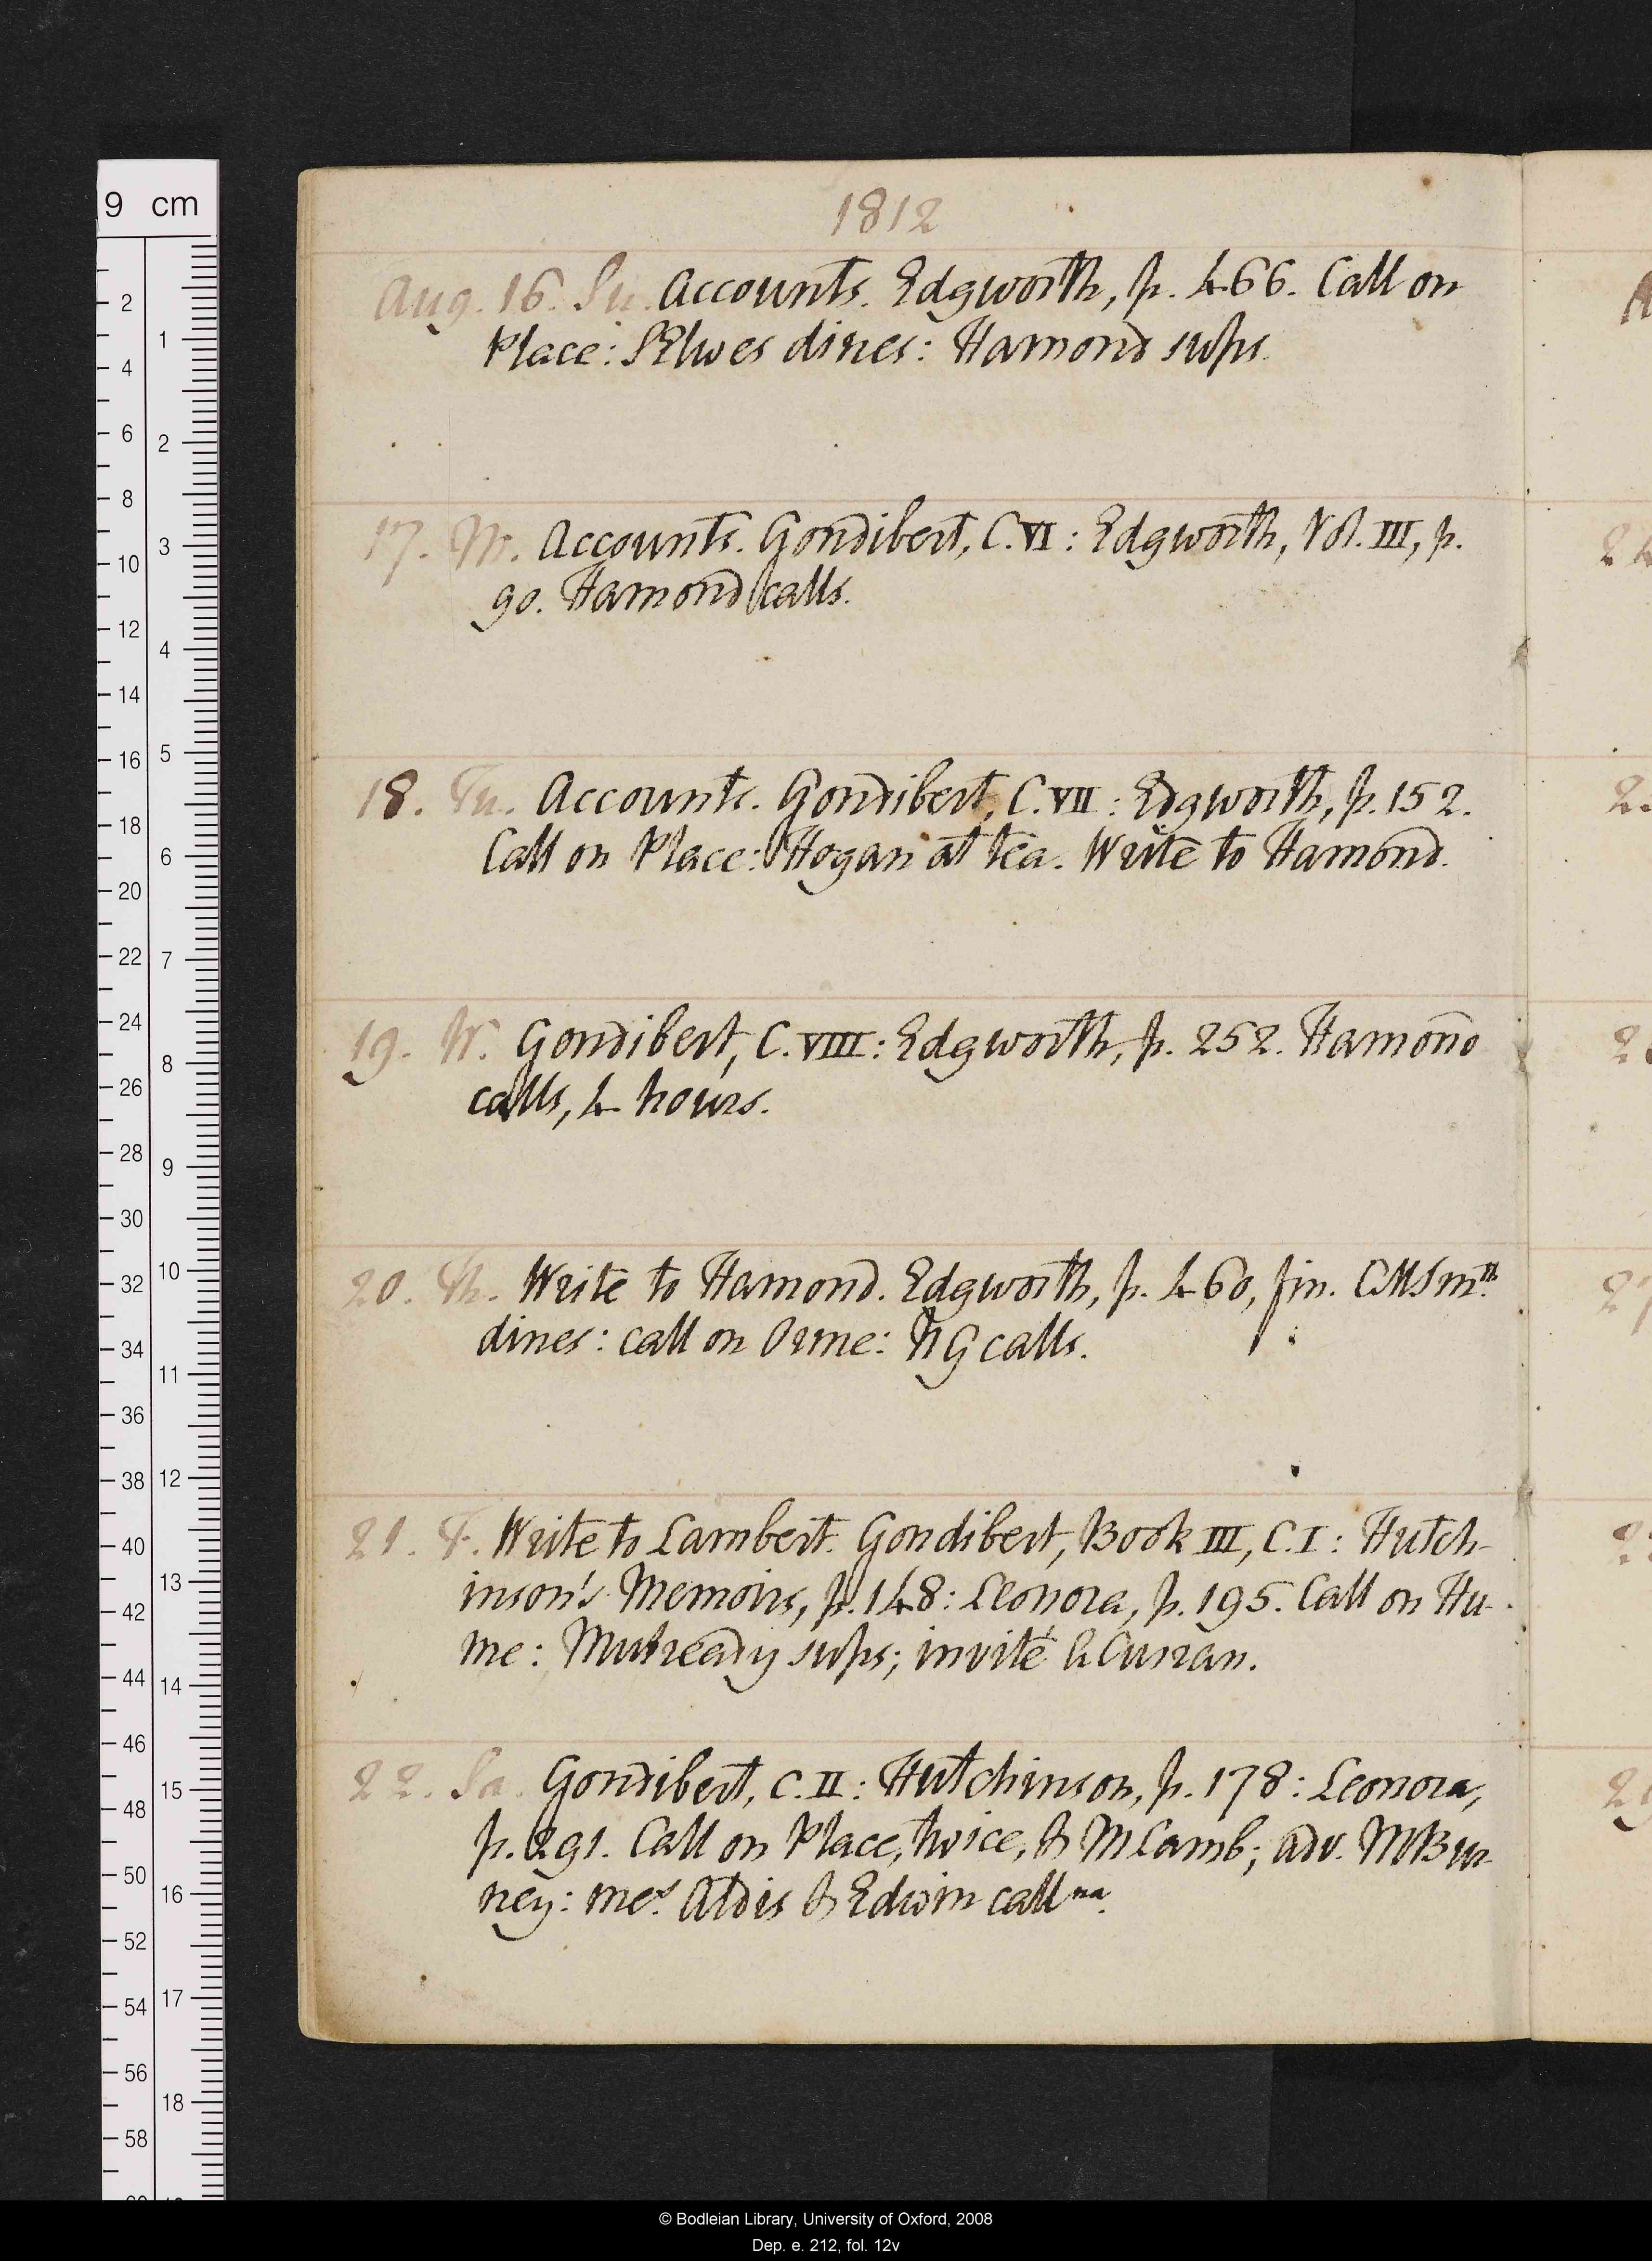 1812
Aug. 16. Su. Accounts. Edgworth, p. 466. Call on
Place: SElwes dines: Hamond sups.
17. M. Accounts. Gondibert, C. VI: Edgworth, Vol. III, p.
90. Hamond calls.
18. Tu. Accounts. Gondibert, C. VII: Edgworth, p. 152.
Call on Place: Hogan at tea. Write to Hamond.
19. W. Gondibert, C. VIII: Edgworth, p. 252. Hamond
calls, 4 hours.
20. Th. Write to Hamond. Edgworth, p. 460, fin. CMSmth
dines: call on Orme: NG calls.
21. F. Write to Lambert. Gondibert, Book III, C. I: Hutch-
inson's Memoirs, p. 148: Leonora, p. 195. Call on Hu-
me: Mulready sups; invité A Curran.
22. Sa. Gondibert, C. II: Hutchinson, p. 178: Leonora,
p. 291. Call on Place, twice, & M Lamb; adv. M Bur-
ney: mes Aldis & Edwin call na.
9 cm
2
4
6
8
10
12
14
16
18
20
22
24
26
28
30
32
34
36
38
40
42
44
46
48
50
52
54
56
58
1
2
3
4
5
6
7
8
9
10
11
12
13
14
15
16
17
18
© Bodleian Library, University of Oxford, 2008
Dep. e. 212, fol. 12v